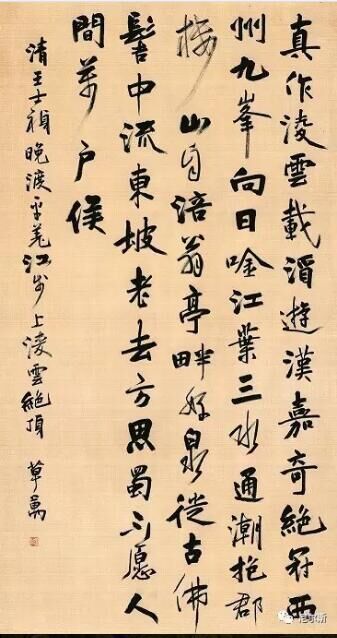 真作淩雲載酒遊漢嘉奇絕冠西
州九峯向日唫江葉三水通潮抱郡
樓山自涪翁亭畔好泉從古佛
髻中流東坡老去方思蜀不愿人
間萬戶侯
清王士禎晚渡平羌江步上淩雲絕頂 草